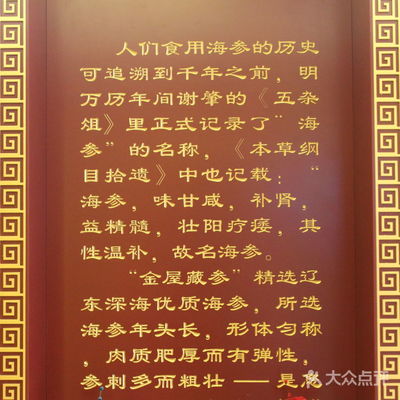 人们食用海参的历史
可追溯到千年之前，明
万历年间谢肇的《五杂
俎》里正式记录了"海
参"的名称，《本草纲
目拾遗》中也记载："
海参，味甘咸，补肾，
益精髓，壮阳疗痿，其
性温补，故名海参。
"金屋藏参"精选辽
东深海优质海参，所选
海参年头长，形体匀称
，肉质肥厚而有弹性，
参刺多而粗壮——是
大众点评